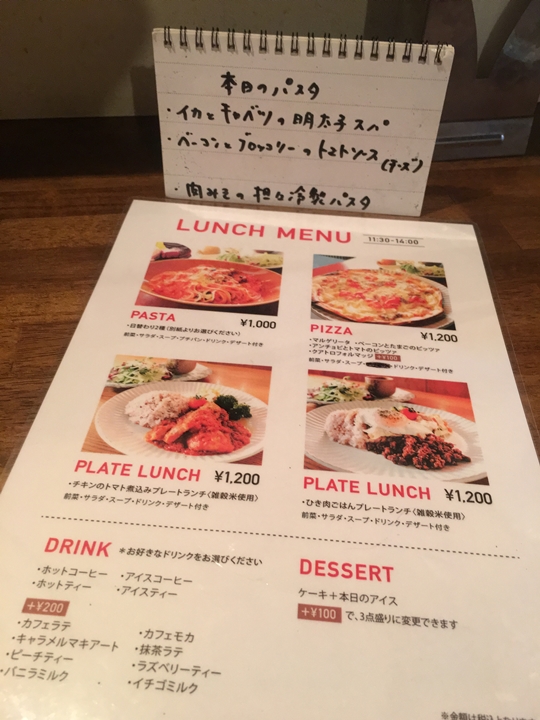 本日のパスタ
・イカとキャベツの明太子スパ
・ベーコンとブロッコリーのトマトソース(チーズ)
・肉みその担々冷製パスタ
LUNCH MENU 11:30-14:00
PASTA ¥1,000
・日替わり2種(別紙よりお選びください)
前菜・サラダ・スープ・プチパン・ドリンク・デザート付き
PIZZA ¥1,200
・マルゲリータ ・ベーコンとたまごのピッツァ
・アンチョビとトマトのピッツァ
・クアトロフォルマッジ +¥100
前菜・サラダ・スープ・ドリンク・デザート付き
PLATE LUNCH ¥1,200
・チキンのトマト煮込みプレートランチ〈雑穀米使用〉
前菜・サラダ・スープ・ドリンク・デザート付き
PLATE LUNCH ¥1,200
・ひき肉ごはんプレートランチ〈雑穀米使用〉
前菜・サラダ・スープ・ドリンク・デザート付き
DRINK *お好きなドリンクをお選びください
・ホットコーヒー ・アイスコーヒー
・ホットティー ・アイスティー
+¥200
・カフェラテ ・カフェモカ
・キャラメルマキアート ・抹茶ラテ
・ピーチティー ・ラズベリーティー
・バニラミルク ・イチゴミルク
DESSERT
ケーキ+本日のアイス
+¥100 で、3点盛りに変更できます